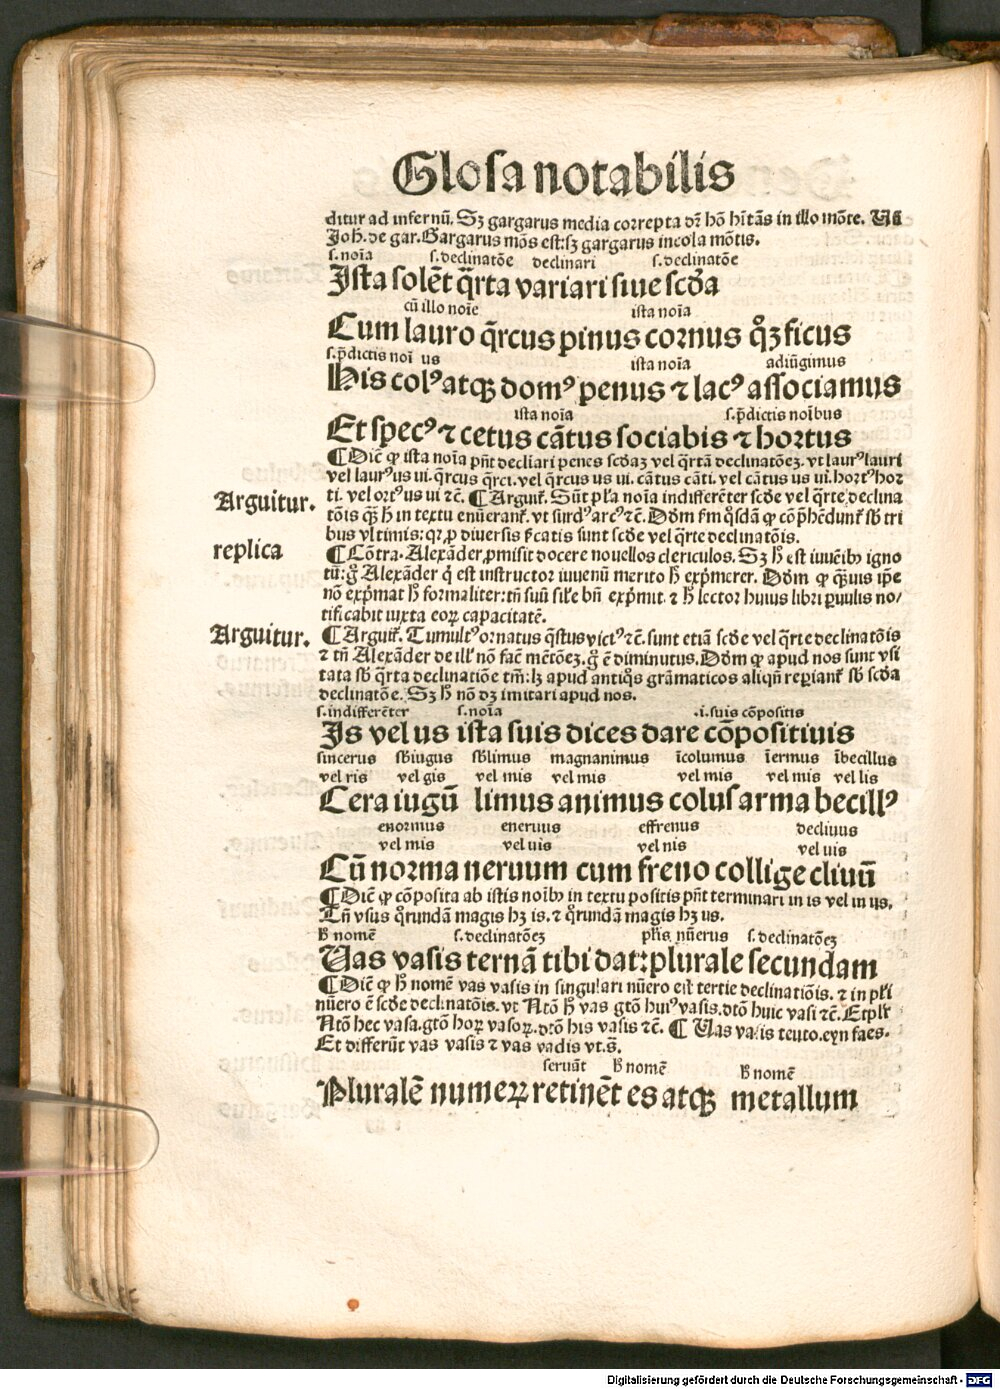 Glosa notabilis
ditur ad infernū. Sȝ gargarus media correpta dr̄ hō hītās in illo mōte. Uñ
Joh̄. de gar. Gargarus mōs est: sȝ gargarus incola mōtis.
s. noīa s. declinatōe declinari s. declinatōe
Ista solēt q̄rta variari siue scd̄a
cū illo noīe ista noīa
Cum lauro q̄rcus pinus cornus qꝫ ficus
s. p̄dictis noī us ista noīa adiūgimus
His colꝰ atqꝫ domꝰ penus ⁊ lacꝰ associamus
ista noīa s. p̄dictis noībus
Et specꝰ ⁊ cetus cātus sociabis ⁊ hortus
¶ Dic̄ ꝙ ista noīa pn̄t decliari penes scd̄aȝ vel q̄rtā declinatōeȝ. vt laurꝰ lauri
vel laurꝰ us ui. q̄rcus q̄rci. vel q̄rcus us ui. cātus cāti. vel cātus us ui. hortꝰ hor
Arguitur.
ti. vel ortꝰ us ui ⁊c̄. ¶ Arguit̄. Sūt pl̄a noīa indifferēter scd̄e vel q̄rte declina
tōis q̄ h̄ in textu enūerant̄. vt surdꝰ arcꝰ ⁊c̄. Dōm fm q̄sdā ꝙ cōp̄hēdunt̄ sb̄ tri
bus vltimis: qꝛ ꝓ diuersis fcatis sunt scd̄e vel q̄rte declinatōis.
replica
¶ Cōtra. Alexāder ꝓmisit docere nouellos clericulos. Sȝ h̄ est iuuēibꝰ igno
tū: gͦ Alexāder q̄ est instructor iuuenū merito h̄ exp̄merer. Dōm ꝙ q̄uis ip̄e
nō exp̄mat h̄ formaliter: tn̄ suū sil̄e bn̄ exp̄mit. ⁊ h̄ lector huius libri ꝑuulis no/
tificabit iuxta eoꝝ capacitatē.
Arguitur.
¶ Arguit̄. Tumultꝰ ornatus q̄stus victꝰ ⁊c̄. sunt etiā scd̄e vel q̄rte declinatōis
⁊ tn̄ Alexāder de ill̄ nō fac̄ mētōeȝ. gͦ ē diminutus. Dōm ꝙ apud nos sunt vsi
tata sb̄ q̄rta declinatiōe tm̄: lȝ apud antiq̄s grāmaticos aliqn̄ reꝑiant̄ sb̄ scd̄a
declinatōe. Sȝ h̄ nō dȝ imitari apud nos.
s. indifferēter s. noīa .i. suis cōpositis
Is vel us ista suis dices dare cōpositiuis
sincerus sb̄iugus sb̄limus magnanimus īcolumus īermus ībecillus
vel ris vel gis vel mis vel mis vel mis vel mis vel lis
Cera iugū limus animus colus arma becillꝰ
enormus eneruus effrenus decliuus
vel mis vel uis vel nis vel uis
Cū norma neruum cum freno collige cliuū
¶ Dic̄ ꝙ cōposita ab istis noībꝰ in textu positis pn̄t terminari in is vel in us.
Tn̄ vsus q̄rundā magis hȝ is. ⁊ q̄rundā magis hȝ us.
h̄ nomē s. declinatōeȝ pl̄is nūerus s. declinatōeȝ
Uas vasis ternā tibi dat: plurale secundam
¶ Dic̄ ꝙ h̄ nomē vas vasis in singulari nūero est tertie declinatiōis. ⁊ in pl̄i
nūero ē scd̄e declinatōis. vt Ntō h̄ vas gtō huiꝰ vasis. dtō huic vasi ⁊c̄. Et pl̄r
Ntō hec vasa. gtō hoꝝ vasoꝝ. dtō his vasis ⁊c̄. ¶ Uas vasis teuto. eyn faes.
Et differūt vas vasis ⁊ vas vadis vt. s̄.
seruāt h̄ nomē h̄ nomē
Pluralē numeꝝ retinēt es atqꝫ metallum
Digitalisierung gefördert durch die Deutsche Forschungsgemeinschaft - DFG